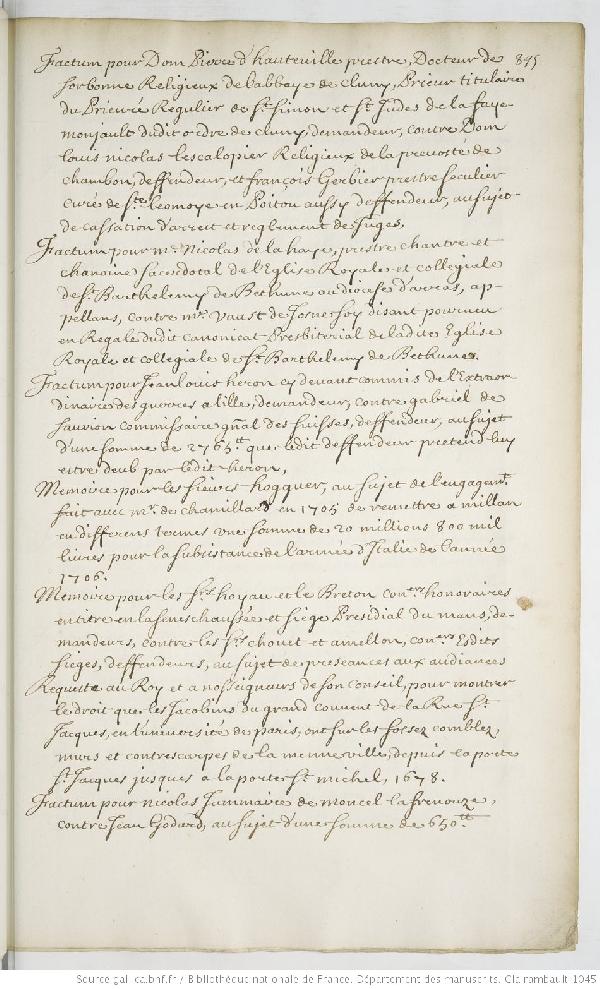 Factum pour Dom Pierre d'hauteville prestre, Docteur de 895
sorbonne Religieux de l'abbaye de cluny, Prieur titulaire
du Prieuré Regulier de St. Simon et St. Judes de la faye
monjault dudit ordre de cluny, demandeur, contre Dom
louis nicolas Lescalopier Religieux de la prevosté de
chambon, deffendeur, et françois Gerbier prestre seculier
curé de Ste. Leomoye en Poitou aussy deffendeur, au sujet
de cassation d'arrest et reglement de Juges.
Factum pour Mr. Nicolas de la haye, prestre chantre et
chanoine sacerdotal de l'Eglise Royale et collegiale
de St. Barthelemy de Bethune au diocese d'arras, ap-
pellans, contre Mre. Vaast de soy disant pourveu
en Regale dudit canonicat Presbiterial de ladite Eglise
Royale et collegiale de St. Barthelemy de Bethune.
Factum pour Jean louis heron cy devant commis de l'Extraor-
dinaire des guerres a lille, demandeur, contre gabriel de
sauvion commissaire gnal des suisses, deffendeur, au sujet
d'une somme de 2765tt que ledit deffendeur pretend luy
estre deub par ledit heron.
Memoire pour les sieurs hogguer, au sujet de l'engagemt.
fait avec Mr. de chamillard en 1705 de remettre a millan
en differens termes une somme de 20 millions 800 mil
livres pour la subsistance de l'armée d'Italie de l'année
1706.
Memoire pour les Srs. hoyau et le Breton coners honoraires
en titre en la seneschaussée et siege Presidial du mans, de-
mandeurs, contre les Srs. chouet et amellon, coners Esdits
sieges, deffendeurs, au sujet de preseances aux audiances
Requeste au Roy et a nosseigneurs de son conseil, pour montrer
le droit que les Jacobins du grand couvent de la Rue St.
Jacques, en l'université de paris, ont sur les fossez comblez,
murs et contrescarpes de la mesme ville, depuis la porte
St. Jacques jusques a la porte St. michel, 1678.
Factum pour nicolas de moncel lafrenouze,
contre Jean Godard, au sujet d'une somme de 650tt.
Source gallica.bnf.fr / Bibliothèque nationale de France. Département des manuscrits. Clairambault 1045